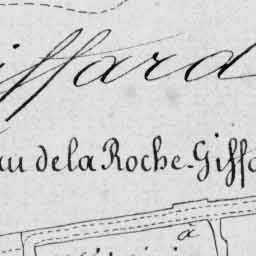 iffard
au de la Roche-Giffa
a